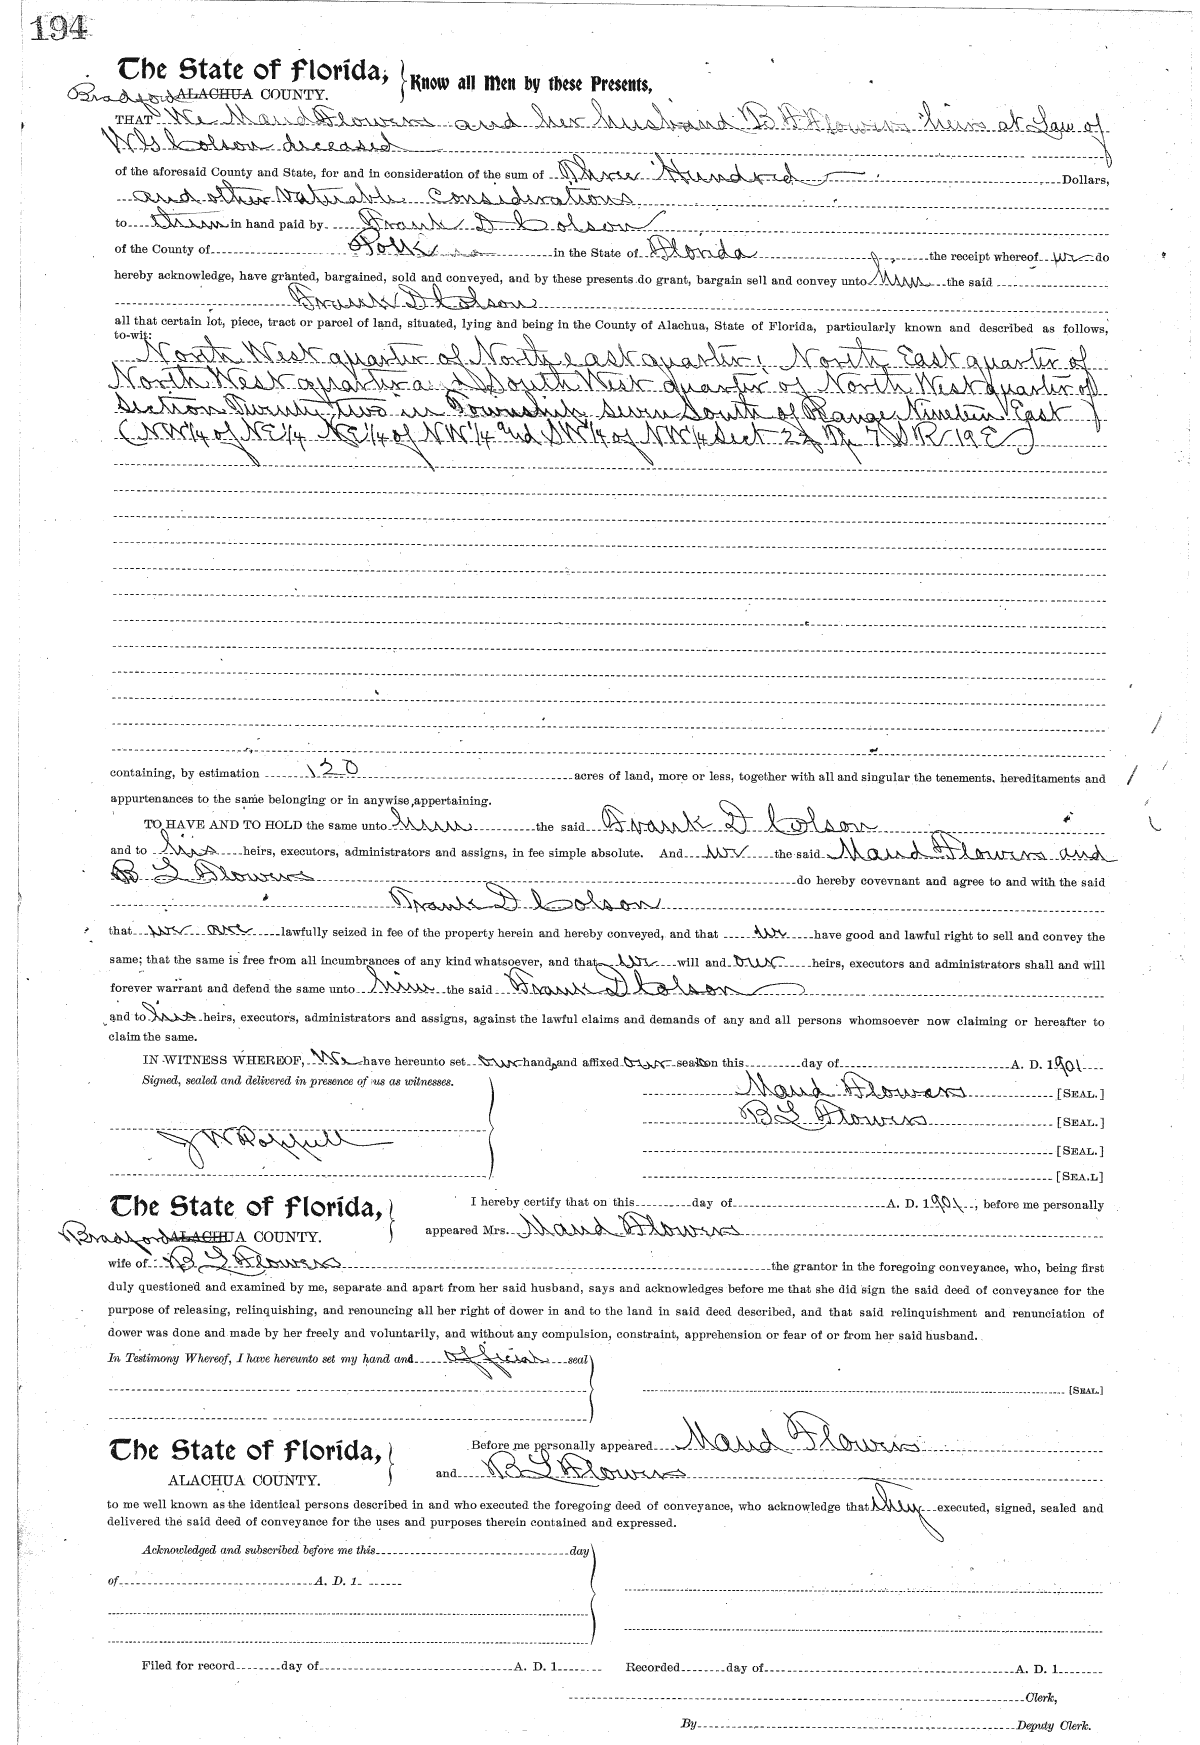 194
The State of Florida, Know all Men by these Presents,
Bradford ALACHUA COUNTY.
THAT We Maud Flowers and her husband B L Flowers heirs at Law of
W G Colson deceased
of the aforesaid County and State, for and in consideration of the sum of Three Hundred Dollars,
and other Valuable Considerations
to them in hand paid by Frank D Colson
of the County of Polk in the State of Florida the receipt whereof we do
hereby acknowledge, have granted, bargained, sold and conveyed, and by these presents do grant, bargain sell and convey unto him the said
Frank D Colson
all that certain lot, piece, tract or parcel of land, situated, lying and being in the County of Alachua, State of Florida, particularly known and described as follows,
to-wit:
North West quarter of North east quarter; North East quarter of
North West quarter and South West quarter of North West quarter of
Section Twenty two in Township seven South of Range Nineteen East
(NW¼ of NE¼ NE¼ of NW¼ and SW¼ of NW¼ Sect 22 Tp 7 S R 19 E)
containing, by estimation 120 acres of land, more or less, together with all and singular the tenements, hereditaments and
appurtenances to the same belonging or in anywise appertaining.
TO HAVE AND TO HOLD the same unto him the said Frank D Colson
and to his heirs, executors, administrators and assigns, in fee simple absolute. And we the said Maud Flowers and
B L Flowers do hereby covevnant and agree to and with the said
Frank D Colson
that we are lawfully seized in fee of the property herein and hereby conveyed, and that we have good and lawful right to sell and convey the
same; that the same is free from all incumbrances of any kind whatsoever, and that we will and our heirs, executors and administrators shall and will
forever warrant and defend the same unto him the said Frank D Colson
and to his heirs, executors, administrators and assigns, against the lawful claims and demands of any and all persons whomsoever now claiming or hereafter to
claim the same.
IN WITNESS WHEREOF, We have hereunto set our hands and affixed our seals on this day of A. D. 1901
Signed, sealed and delivered in presence of us as witnesses.
Maud Flowers [SEAL.]
B L Flowers [SEAL.]
J W
[SEAL.]
[SEA.L]
The State of Florida, I hereby certify that on this day of A. D. 1901, before me personally
Bradford ALACHUA COUNTY. appeared Mrs. Maud Flowers
wife of B L Flowers the grantor in the foregoing conveyance, who, being first
duly questioned and examined by me, separate and apart from her said husband, says and acknowledges before me that she did sign the said deed of conveyance for the
purpose of releasing, relinquishing, and renouncing all her right of dower in and to the land in said deed described, and that said relinquishment and renunciation of
dower was done and made by her freely and voluntarily, and without any compulsion, constraint, apprehension or fear of or from her said husband.
In Testimony Whereof, I have hereunto set my hand and official seal
[SEAL.]
The State of Florida, Before me personally appeared Maud Flowers
ALACHUA COUNTY. and B L Flowers
to me well known as the identical persons described in and who executed the foregoing deed of conveyance, who acknowledge that they executed, signed, sealed and
delivered the said deed of conveyance for the uses and purposes therein contained and expressed.
Acknowledged and subscribed before me this day
of A. D. 1
Filed for record day of A. D. 1 Recorded day of A. D. 1
Clerk,
By Deputy Clerk.